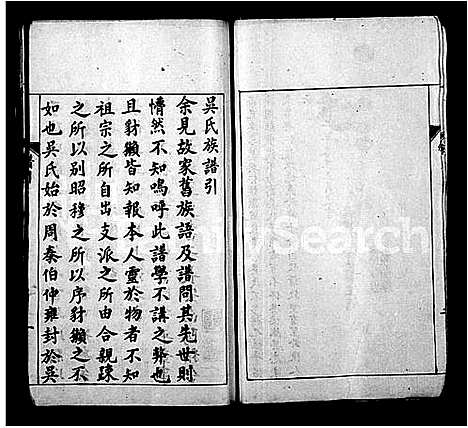 吳氏族譜引
余見故家舊族語及譜問其先世則
懵然不知嗚呼此譜學不講之弊也
且豺獺皆知報本人靈於物者不知
祖宗之所自出支派之所由合親疎
之所以別昭穆之所以序豺獺之不
如也吳氏始於周泰伯仲雍封於吳
FamilySearch